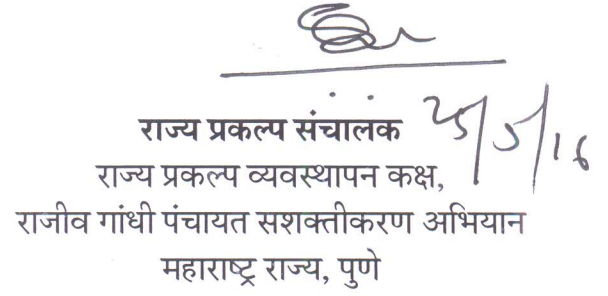 राज्य प्रकल्प संचालक
२५/५/१६
राज्य प्रकल्प व्यवस्थापन कक्ष,
राजीव गांधी पंचायत सशक्तीकरण अभियान
महाराष्ट्र राज्य, पुणे